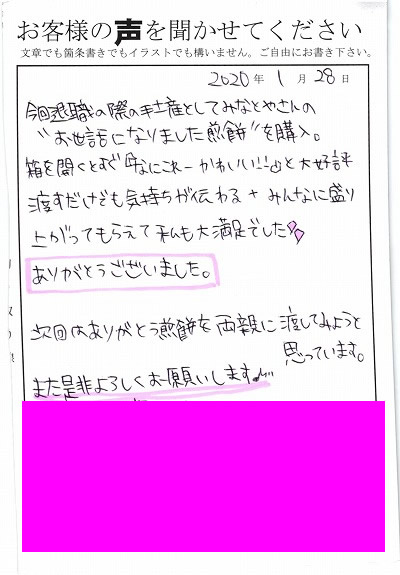 お客様の声を聞かせてください
文章でも箇条書きでもイラストでも構いません。ご自由にお書き下さい。
2020年1月28日
今回退職の際の手土産としてみなとやさんの
"お世話になりました煎餅"を購入。
箱を開くとすぐ「なにこれーかわいい!!」と大好評
渡すだけでも気持ちが伝わる+みんなに盛り
上がってもらえて私も大満足でした
ありがとうございました。
次回はありがとう煎餅を両親に渡してみようと
思っています。
また是非よろしくお願いします